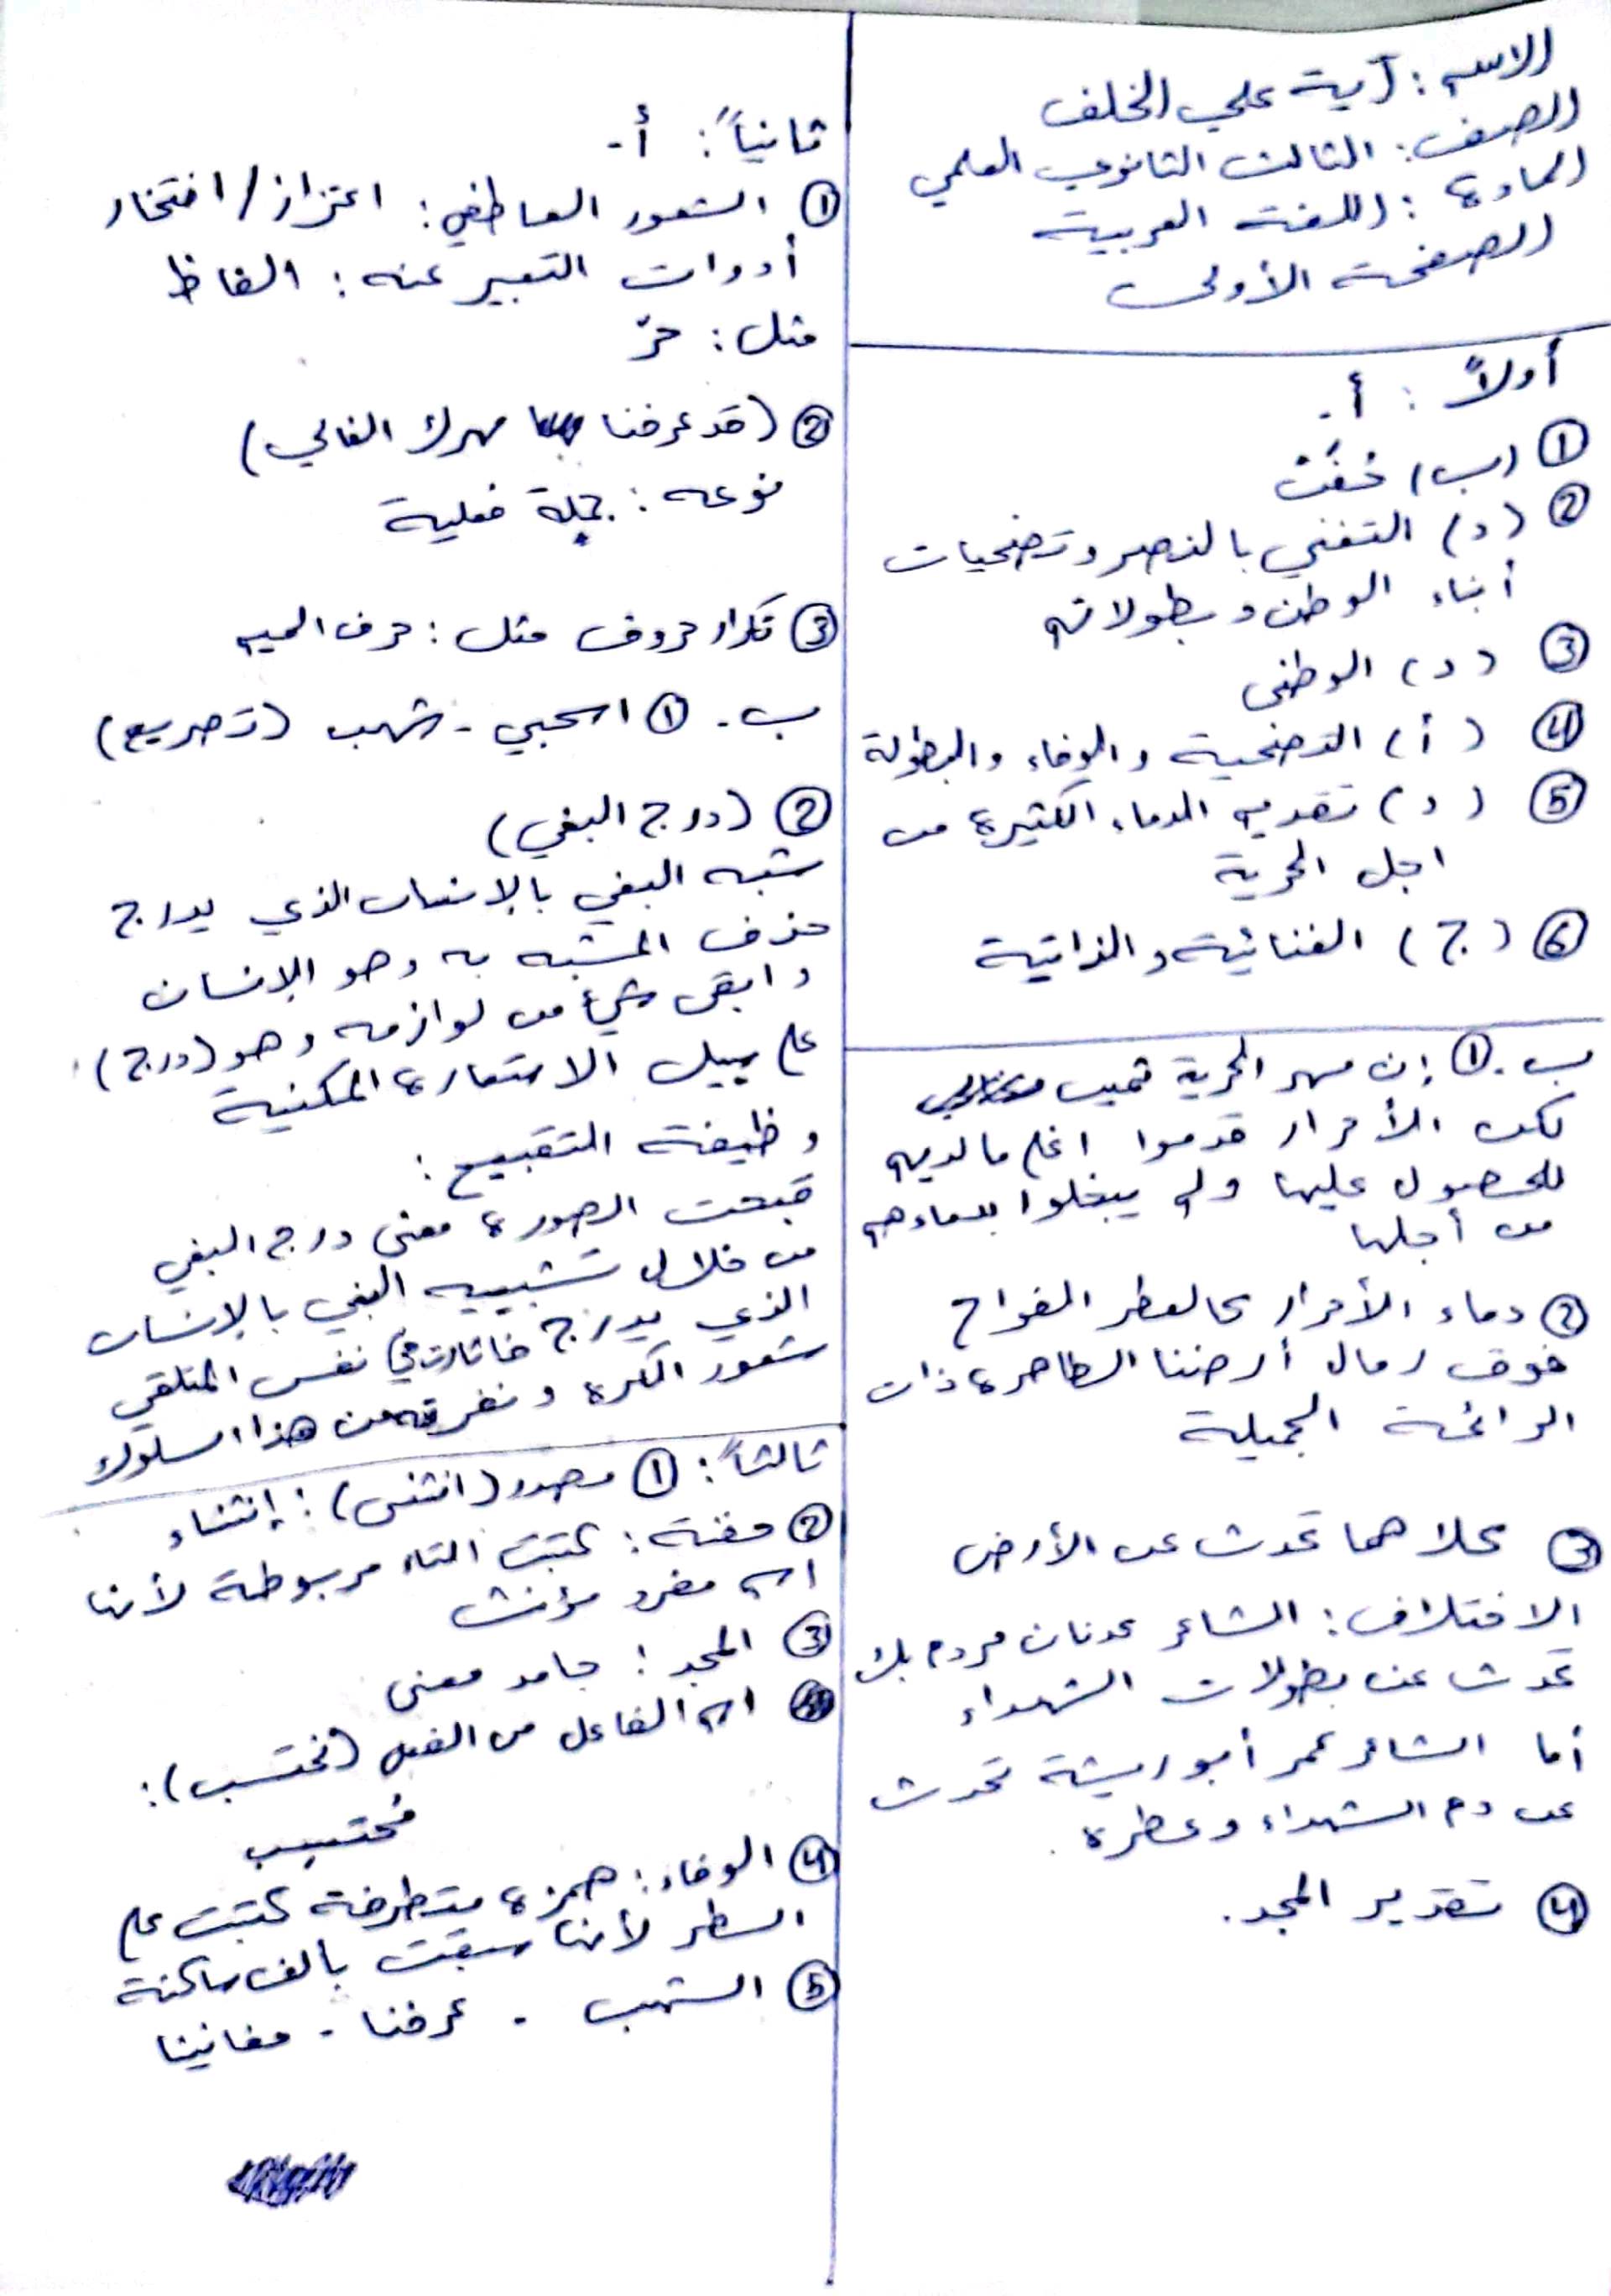 الاسم : آية علي الخلف
الصف : الثالث الثانوي العلمي
المادة : اللغة العربية
الصفحة الأولى
أولاً : أ -
① (ب)
② (د) التغني بالنصر وتضحيات
أبناء الوطن وبطولاته
③ (د) الوطني
④ (أ) التضحية والوفاء والبطولة
⑤ (د) تقديم الدماء الكثيرة من
اجل الحرية
⑥ (ج) الغنائية والذاتية
ب - ① إن مهر الحرية ثمين
لكن الأحرار قدموا اغلى مالديهم
للحصول عليها ولم يبخلوا بدماءهم
من أجلها
② دماء الأحرار كالعطر الفواح
فوق رمال أرضنا الطاهرة ذات
الرائحة الجميلة
③ كلاهما تحدث عن الأرض
الاختلاف : الشاعر عدنان مردم بك
تحدث عن بطولات الشهداء
أما الشاعر عمر أبو ريشة تحدث
عن دم الشهداء وعطره .
④ تقدير المجد .
ثانياً : أ -
① الشعور العاطفي : اعتزاز / افتخار
أدوات التعبير عنه : الفاظ
مثل : حرّ
② (قد عرفنا مهرك الغالي)
نوعه : جملة فعلية
③ تكرار حروف مثل : حرف الميم
ب - ① اسحبي - شهب (تصريع)
② (درج البغي)
شبه البغي بالإنسان الذي يدرج
حذف المشبه به وهو الإنسان
وابقى شيئ من لوازمه وهو (درج)
على سبيل الاستعارة المكنية
وظيفة التقبيح :
قبحت الصورة معنى درج البغي
من خلال تشبيه البغي بالإنسان
الذي يدرج فاثارت في نفس المتلقي
شعور الكره ونفرته من هذا السلوك
ثالثاً : ① مصدر (انثنى) : إنثناء
② حفنة : كتبت التاء مربوطة لأنها
اسم مفرد مؤنث
③ المجد : جامد معنى
اسم الفاعل من الفعل (نحتسب) :
مُحتسِب
④ الوفاء : همزة متطرفة كتبت على
السطر لأنها سبقت بالف ساكنة
⑤ الشهب - عرفنا - مغانينا